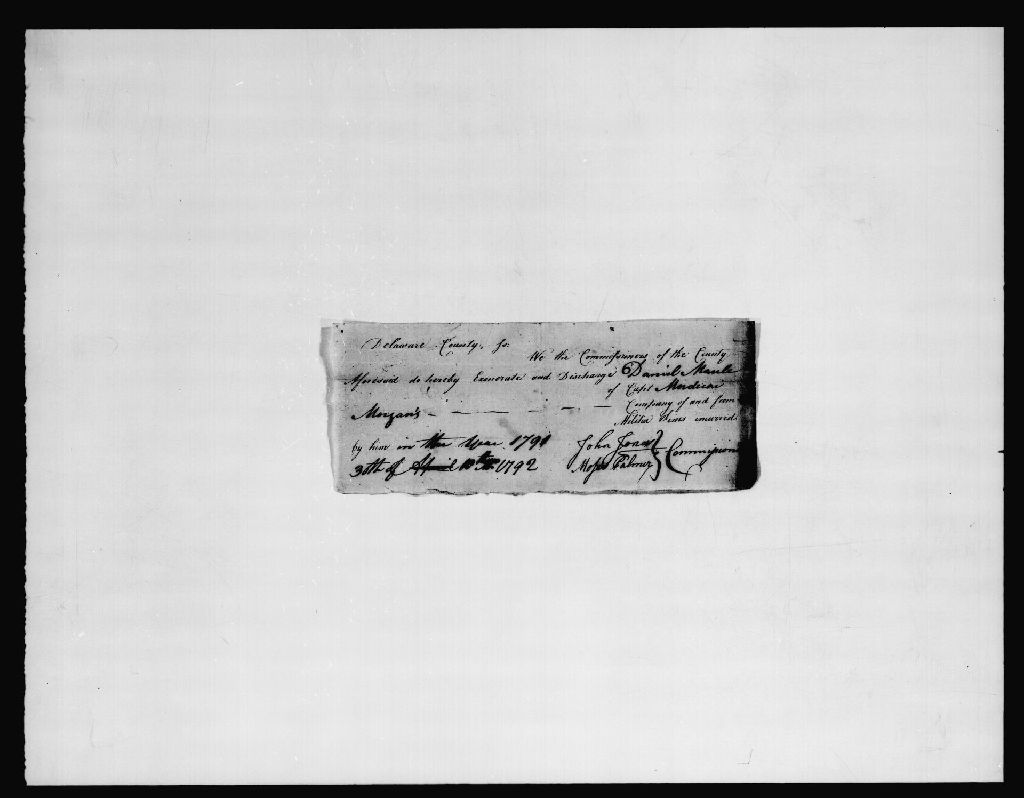 Delaware County, ss.
We the Commissioners of the County
Aforesaid do hereby Exonerate and Discharge Daniel Maule
of Capt Mordicai
Morgan's — — — — — Company of and from
Militia Fines incurred.
by him in the year 1791 John Jones
30th of April 1792 Moses Palmer } Commissioners